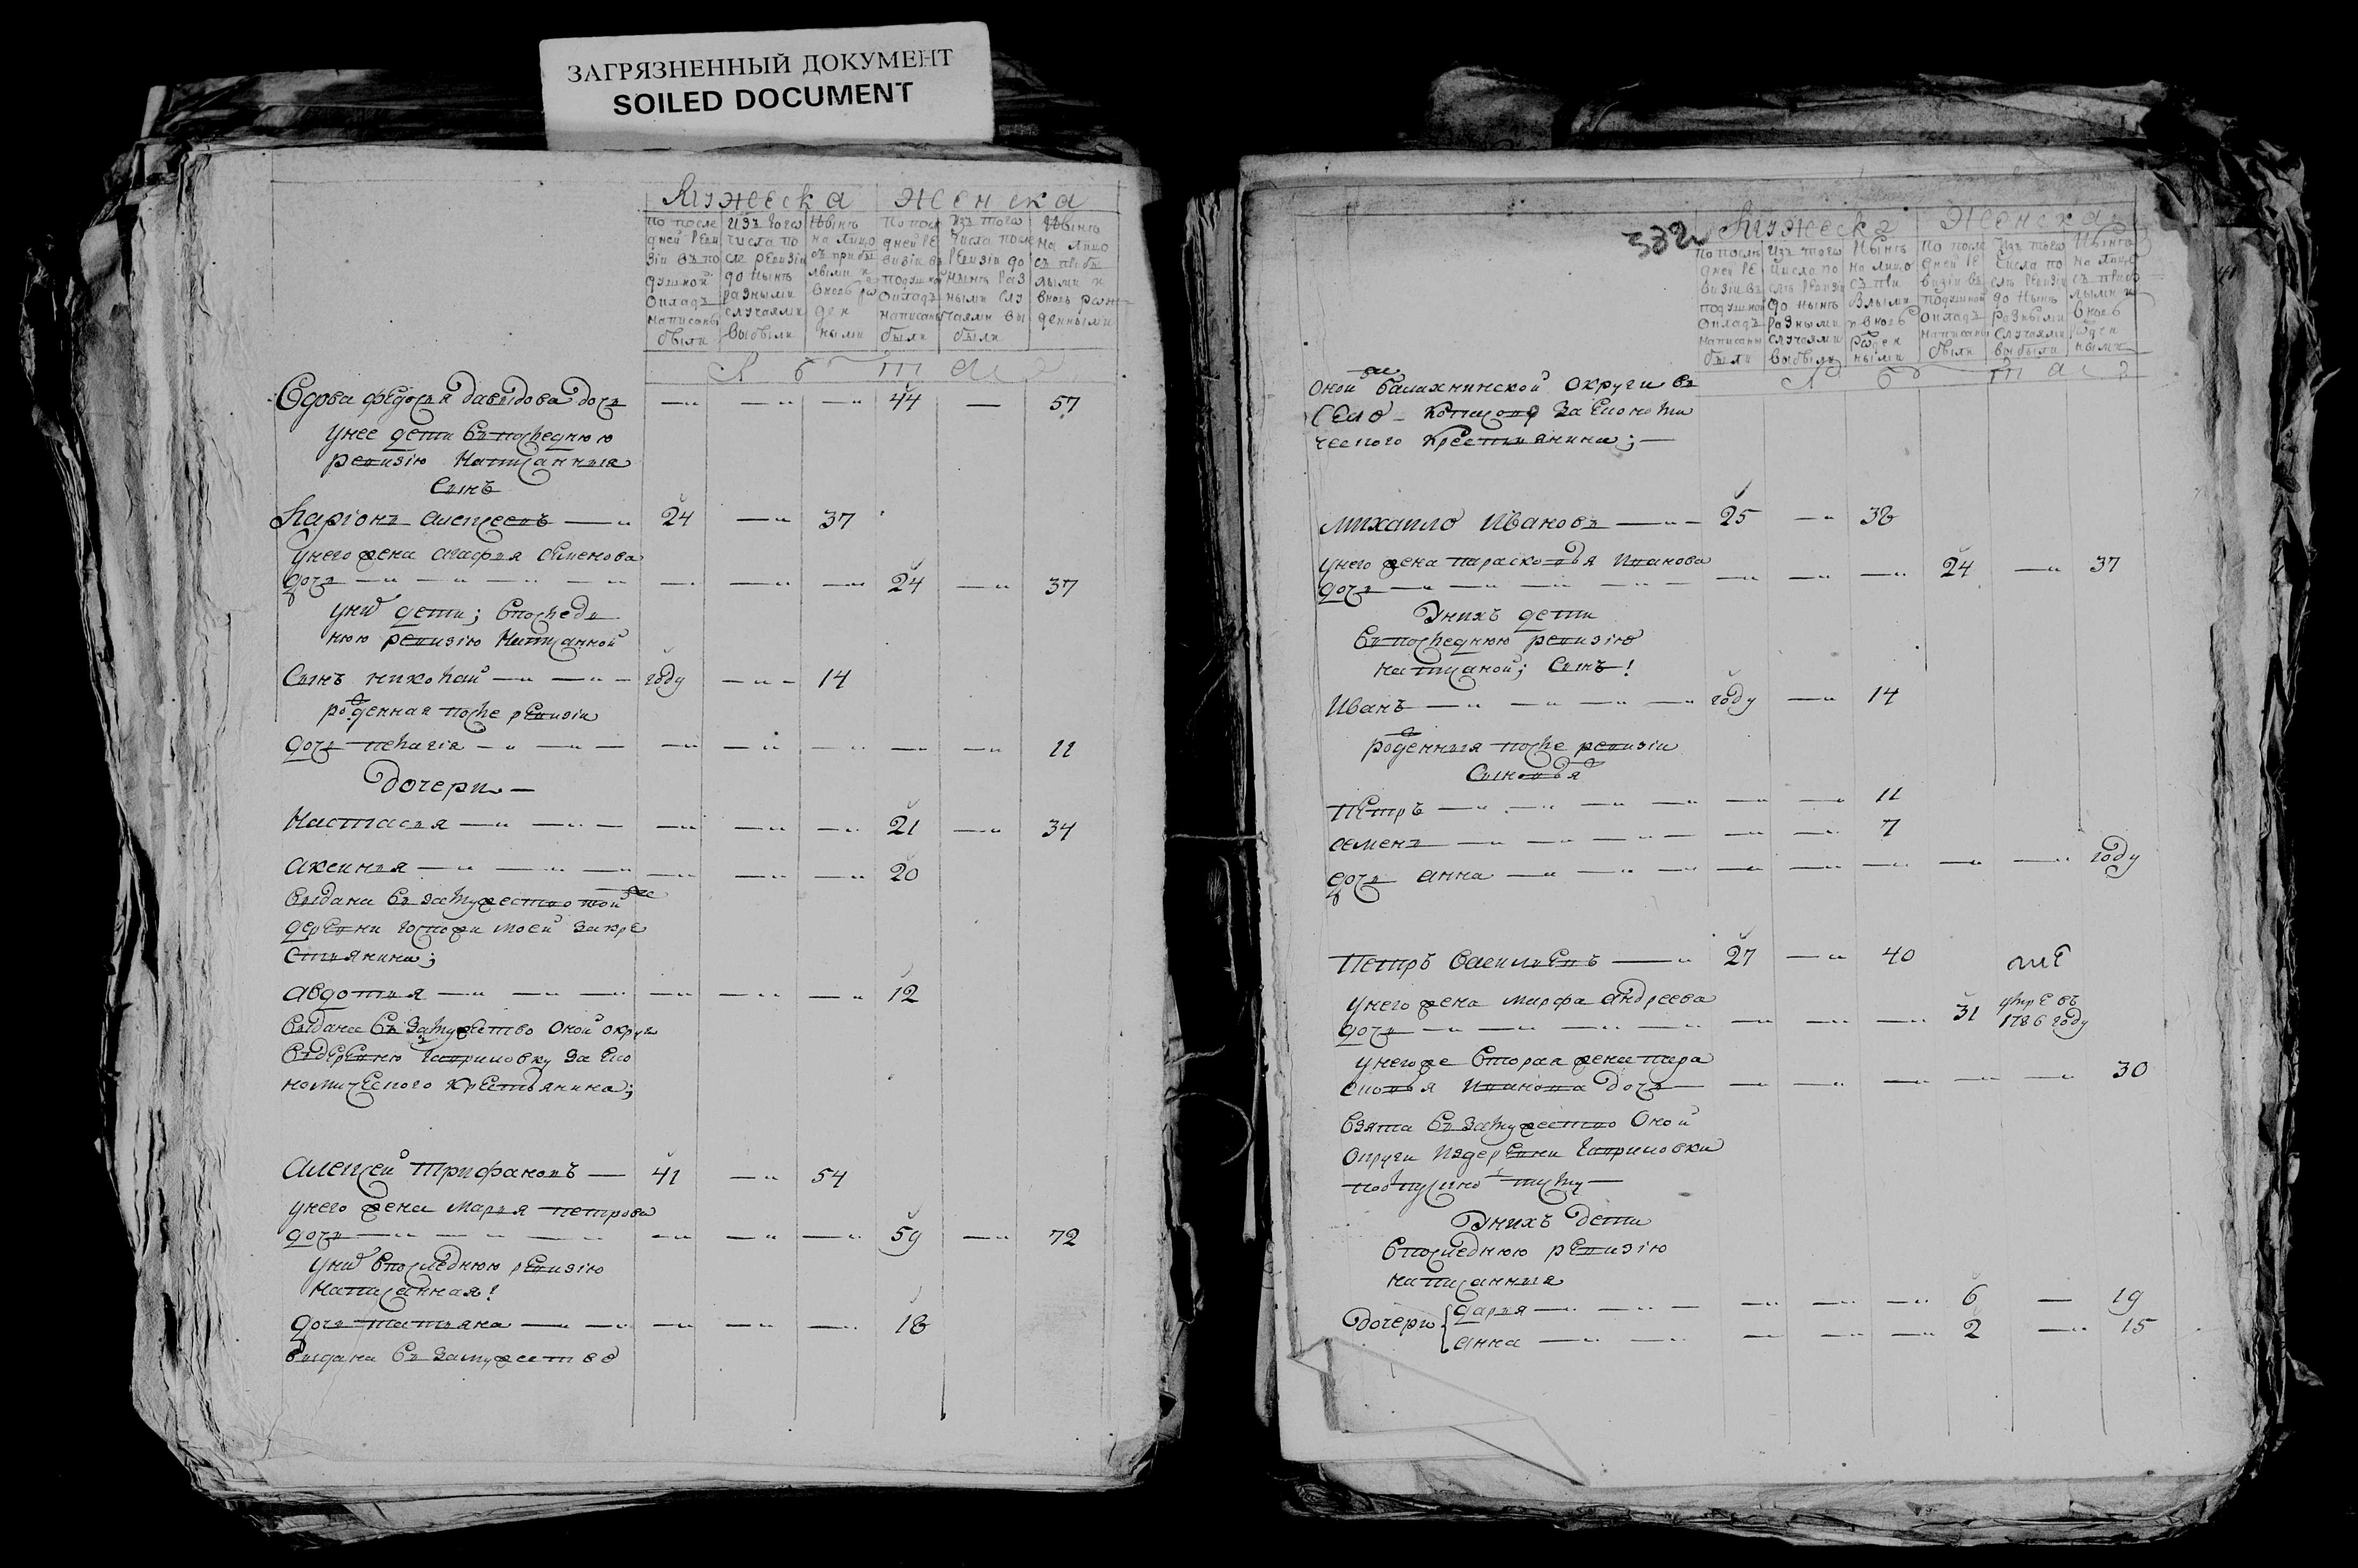 ЗАГРЯЗНЕННЫЙ ДОКУМЕНТ
SOILED DOCUMENT
Мужеска Женска
по после дней ревизіи въ подушной окладъ написаны были
изъ того числа после ревизіи до нынѣ разными случаями выбыли
Нынѣ на лицо съ прибылыми и вновь рожденными
По после дней ревизіи въ подушной окладъ написаны были
Изъ того числа после ревизіи до нынѣ разными случаями выбыли
Нынѣ на лицо съ прибылыми и вновь рожденными
Л ѣ т а
Вдова федосья давыдова дочь — 44 — 57
унее дети въ последнюю
ревизію написанныя
Сынъ
Ларіонъ алексеевъ — 24 — 37
унего жена агафья Семенова
дочь — 24 — 37
уних дети; впоследн
нюю ревизію написанной
Сынъ николай — году — 14
рожденная после ревизіи
дочь пелагія — 11
Дочери —
Настасья — 21 — 34
аксинья — 20
выдана въ замужество тойже
деревни Госпожи моей за кре
стьянина;
авдотья — 12
выдана въ замужество Оной округи
въ деревню гавриловку за еко
номическаго крестьянина;
алексей Трифановъ — 41 — 54
унего жена марья петрова
дочь — 59 — 72
уних впоследнюю ревизію
написанная!
дочь татьяна — 18
выдана въ замужество
382
Мужеска Женска
По после дней ревизіи въ подушной окладъ написаны были
Изъ того числа после ревизіи до нынѣ разными случаями выбыли
Нынѣ на лицо съ прибылыми и вновь рожденными
По после дней ревизіи въ подушной окладъ написаны были
Изъ того числа после ревизіи до нынѣ разными случаями выбыли
Нынѣ на лицо съ прибылыми и вновь рожденными
Л ѣ т а
Оной же балахнинской округи въ
село за економи
ческого крестьянина; —
михаило Ивановъ — 25 — 38
унего жена парасковья Иванова
дочь — 24 — 37
Униxъ дети
въ последнюю ревизію
написаной; Сынъ!
Иванъ — году — 14
рожденныя после ревизіи
Сыновья
Петръ — 11
семенъ — 7
дочь анна — году
Петръ васильевъ — 27 — 40
унего жена марфа андреева
дочь — 31 умре въ 1786 году
унегоже вторая жена пара
сковья Иванова дочь — 30
взята въ замужество Оной
округи издеревни гавриловки
Унихъ дети
впоследнюю ревизію
написанныя
Дочери { дарья — 6 — 19
анна — 2 — 15